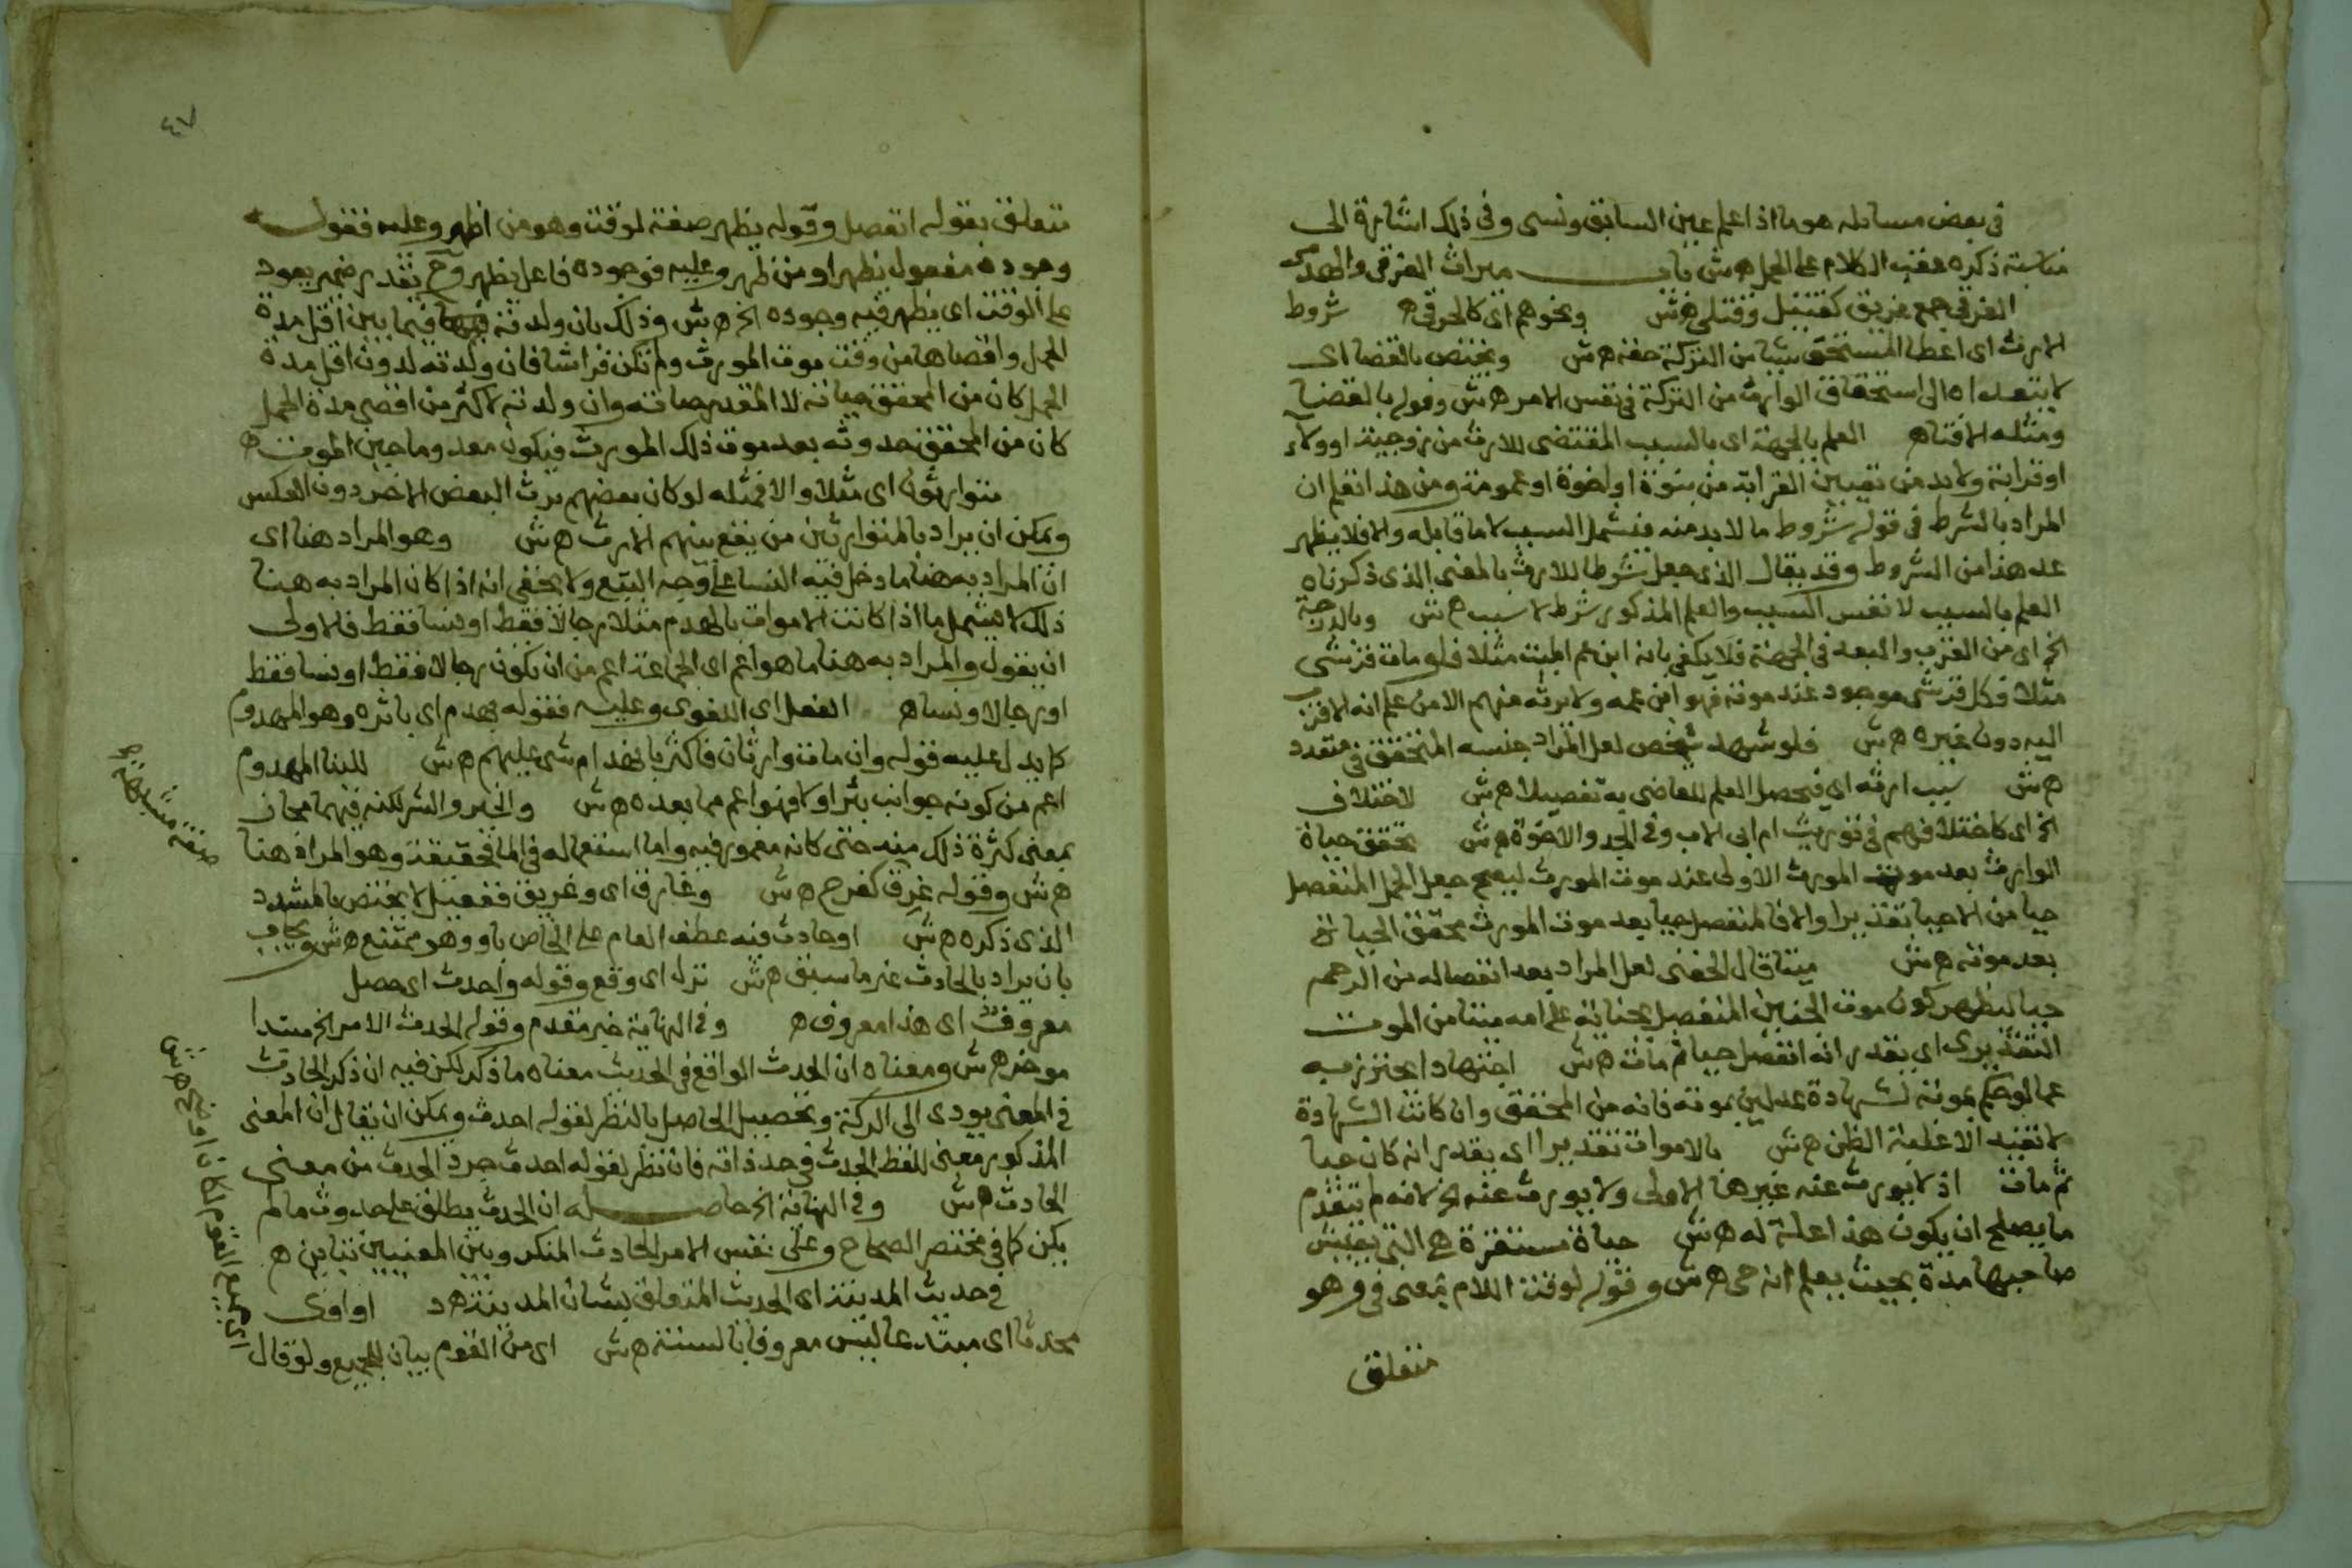 في بعض مسايله هو ما اذا علم عين السابق ونسي وفي ذلك اشارة الى
مناسبة ذكره عقب الكلام على الحمل ه ش باب ميراث الغرقى والهدمى
الغرقى جمع غريق كقتيل وقتلى ه ش ونحوهم اى كالحرقى ه شروط
الارث اى اعطا المستحق شيا من التركة حقه ه ش ويختص بالقضا اى
لا يتعداه الى استحقاق الوارث من التركة في نفس الامر ه ش وقوله بالقضا
ومثله الافتا ه العلم بالجهة اى بالسبب المقتضى للارث من زوجية او ولاء
او قرابة ولا بد من تعيين القرابة من بنوة او اخوة او عمومة ومن هذا تعلم ان
المراد بالشرط في قوله شروط ما لا بد منه فيشمل السبب لا ما قابله والا فلا يظهر
عد هذا من الشروط وقد يقال الذى جعل شرطا للارث بالمعنى الذى ذكرناه
العلم بالسبب لا نفس السبب والعلم المذكور شرط لا سبب ه ش وبالدرجة
الخ اى من القرب والبعد في الجهة فلا يكفى بانه ابن عم الميت مثلا فلو مات قرشى
مثلا فكل قرشى موجود عند موته فهو ابن عمه ولا يرثه منهم الا من علم انه الاقرب
اليه دون غيره ه ش فلو شهد شخص لعل المراد جنسه المتحقق في متعدد
ه ش سبب ارثه اى فيحصل العلم للقاضى به تفصيلا ه ش لاختلاف
الخ اى كاختلافهم في توريث ام ابى الاب وفي الجد والاخوة ه ش تحقق حياة
الوارث بعد موت المورث الاولى عند موت المورث ليصح جعل الحمل المنفصل
حيا من الاحيا تقديرا والا فالمنفصل حيا بعد موت المورث محقق الحياة
بعد موته ه ش ميتا قال الحفنى لعل المراد بعد انفصاله من الرحم
حيا ليظهر كون موت الجنين المنفصل بجناية على امه ميتا من الموت
التقديرى اى يقدر انه انفصل حيا ثم مات ه ش اجتهادا يحترز به
عما لو حكم بموته لشهادة عدلين بموته فانه من المحقق وان كانت الشهادة
لا تفيد الا غلبة الظن ه ش بالاموات تقديرا اى يقدر انه كان حيا
ثم مات اذ لا يورث عنه غيرها الاولى ولا يورث عنه الخ لانه لم يتقدم
ما يصلح ان يكون هذا علة له ه ش حياة مستقرة هي التى يعيش
صاحبها مدة بحيث يعلم انه حى ه ش وقوله لوقت اللام بمعنى في وهو
متعلق
٤٧
متعلق بقوله انفصل وقوله يظهر صفة لوقت وهو من اظهر وعليه فقوله
وجوده مفعول يظهر او من ظهر وعليه فوجوده فاعل يظهر وح يقدر ضمير يعود
على الوقت اى يظهر فيه وجوده الخ ه ش وذلك بان ولدته فيما بين اقل مدة
الحمل واقصاها من وقت موت المورث ولم تكن فراشا فان ولدته لدون اقل مدة
الحمل كان من المحقق حياته لا المقدر حياته وان ولدته لاكثر من اقصى مدة الحمل
كان من المحقق حدوثه بعد موت ذلك المورث فيكون معدوما حين الموت ه
متوارثون اى مثلا والا فمثله لو كان بعضهم يرث البعض الاخر دون العكس
ويمكن ان يراد بالمتوارثين من يقع بينهم الارث ه ش وهو المراد هنا اى
ان المراد به هنا ما دخل فيه النسا على وجه التبع ولا يخفى انه اذا كان المراد به هنا
ذلك لا يشمل ما اذا كانت الاموات بالهدم مثلا رجالا فقط او نسا فقط فالاولى
ان يقول والمراد به هنا ما هو اعم اى الجماعة اعم من ان يكون رجالا فقط او نسا فقط
او رجالا ونسا ه الفعل اى اللغوى وعليه فقوله بهدم اى باثره وهو المهدوم
كما يدل عليه قوله وان مات متوارثان فاكثر بانهدام شى عليهم ه ش للبنا المهدوم
اعم من كونه جوانب بئر او لا فهو اعم مما بعده ه ش والخير والشر لكنه فيهما مجاز
بمعنى كثرة ذلك منه حتى كانه مغمور فيه واما استعماله في الما فحقيقة وهو المراد هنا
ه ش وقوله غرق كفرح ه ش وغارق اى وغريق ففعيل لا يختص بالمشدد
الذى ذكره ه ش او حادث فيه عطف العام على الخاص باو وهو ممتنع ه ش ويجاب
بان يراد بالحادث غير ما سبق ه ش نزل اى وقع وقوله واحدث اى حصل
معروف اى هذا معروف ه وفي النهاية خبر مقدم وقوله الحدث الامر الخ مبتدا
موخر ه ش ومعناه ان الحدث الواقع في الحديث معناه ما ذكر لكن فيه ان ذكر الحادث
في المعنى يودى الى الركة وتحصيل الحاصل بالنظر لقوله احدث ويمكن ان يقال ان المعنى
المذكور معنى للفظ الحدث في حد ذاته فان نظر لقوله احدث جرد الحدث من معنى
الحادث ه ش وفي النهاية الخ حاصله ان الحدث يطلق على حدوث ما لم
يكن كما في مختصر الصحاح وعلى نفس الامر الحادث المنكر وبين المعنيين تباين ه
في حديث المدينة اى الحديث المتعلق بشان المدينة ه د او اوى
محدثا اى مبتدعا ليس معروفا بالسنة ه ش اى من القوم بيان للجميع ولو قال